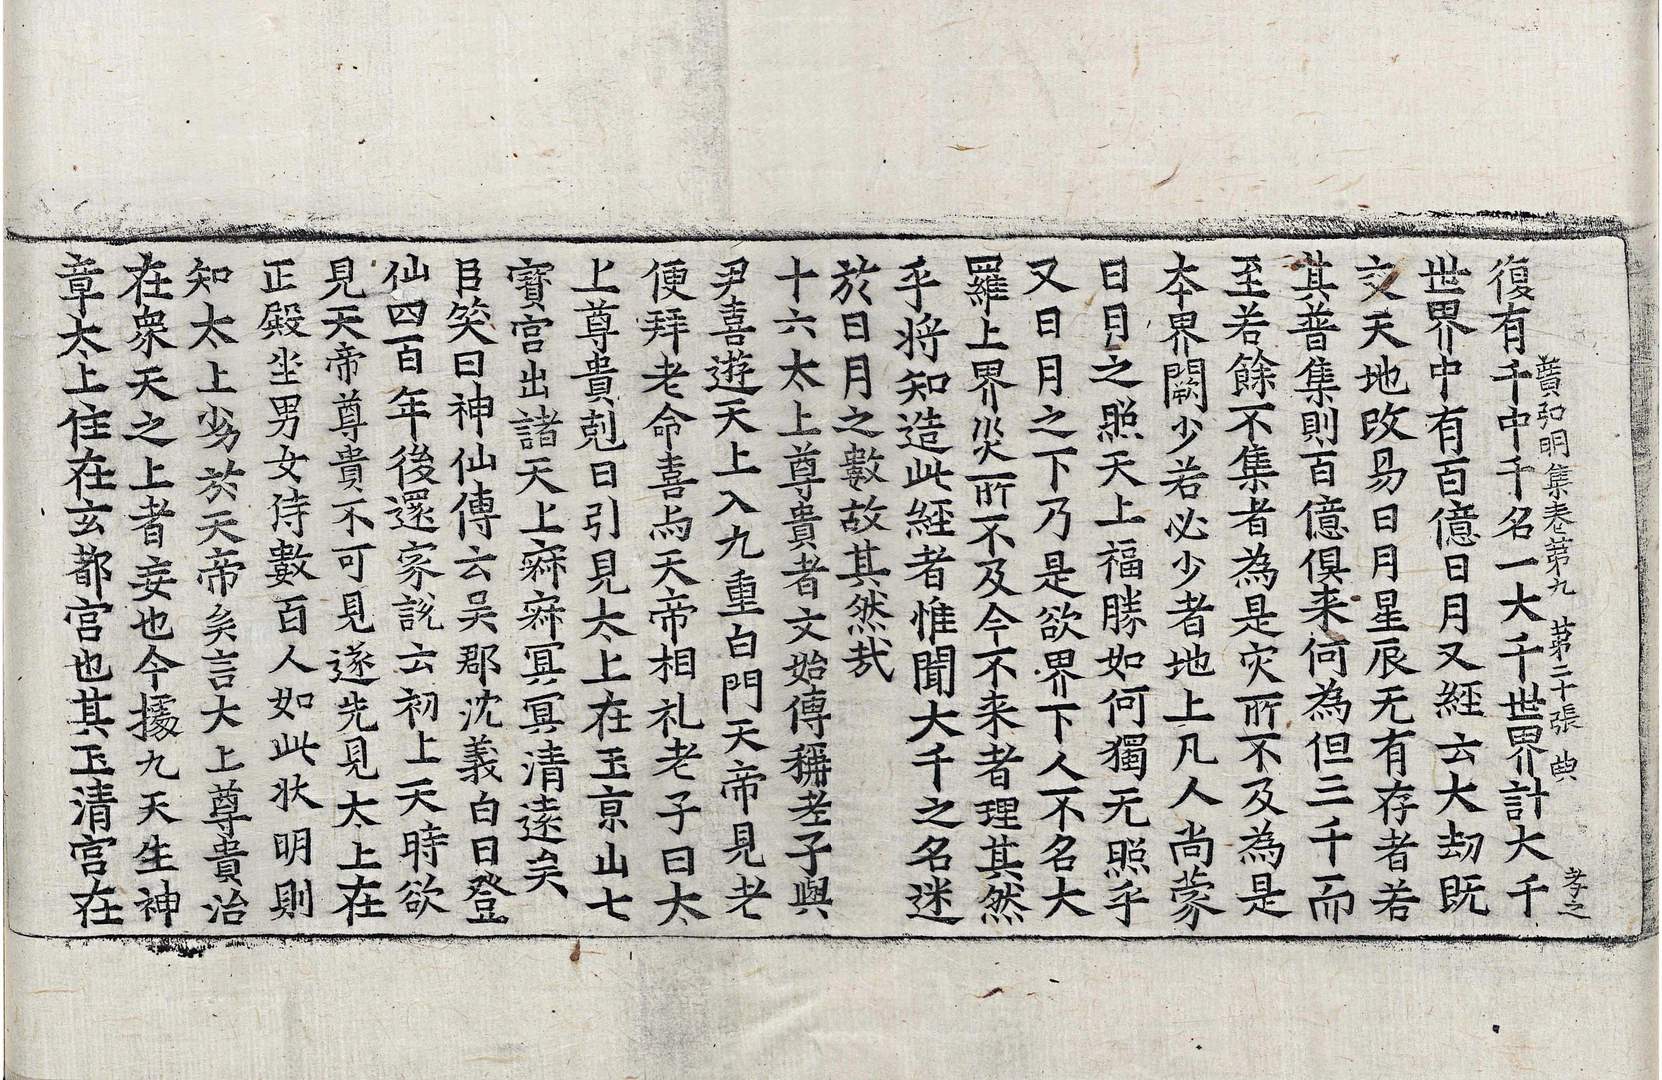 廣弘明集卷第九　第二十張　典　孝之
復有千中千名一大千世界計大千
世界中有百億日月又經云大劫既
交天地改易日月星辰无有存者若
其普集則百億俱来何為但三千而
至若餘不集者為是灾所不及為是
本界闕少若必少者地上凡人尚蒙
日月之照天上福勝如何獨无照乎
又日月之下乃是欲界下人不名大
羅上界災所不及今不来者理其然
乎將知造此經者惟聞大千之名迷
於日月之數故其然㢤
十六太上尊貴者文始傳稱老子與
尹喜遊天上入九重白門天帝見老
便拜老命喜与天帝相礼老子曰太
上尊貴剋日引見太上在玉京山七
寶宮出諸天上寂寂冥冥清遠矣
臣笑曰神仙傳云吳郡沈義白日登
仙四百年後還家說云初上天時欲
見天帝尊貴不可見遂先見太上在
正殿坐男女侍數百人如此狀明則
知太上劣於天帝矣言大上尊貴治
在衆天之上者妄也今據九天生神
章太上住在玄都宮也其玉清宮在